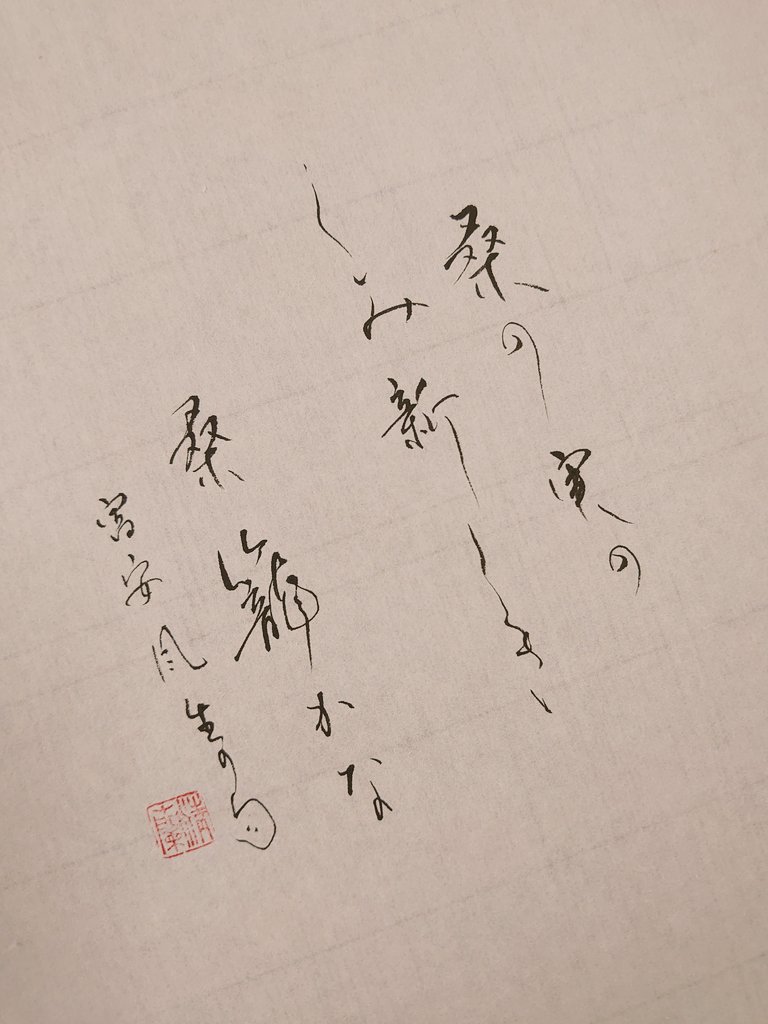 桑の実の
しみ新しき
桑籠かな
富安風生の句